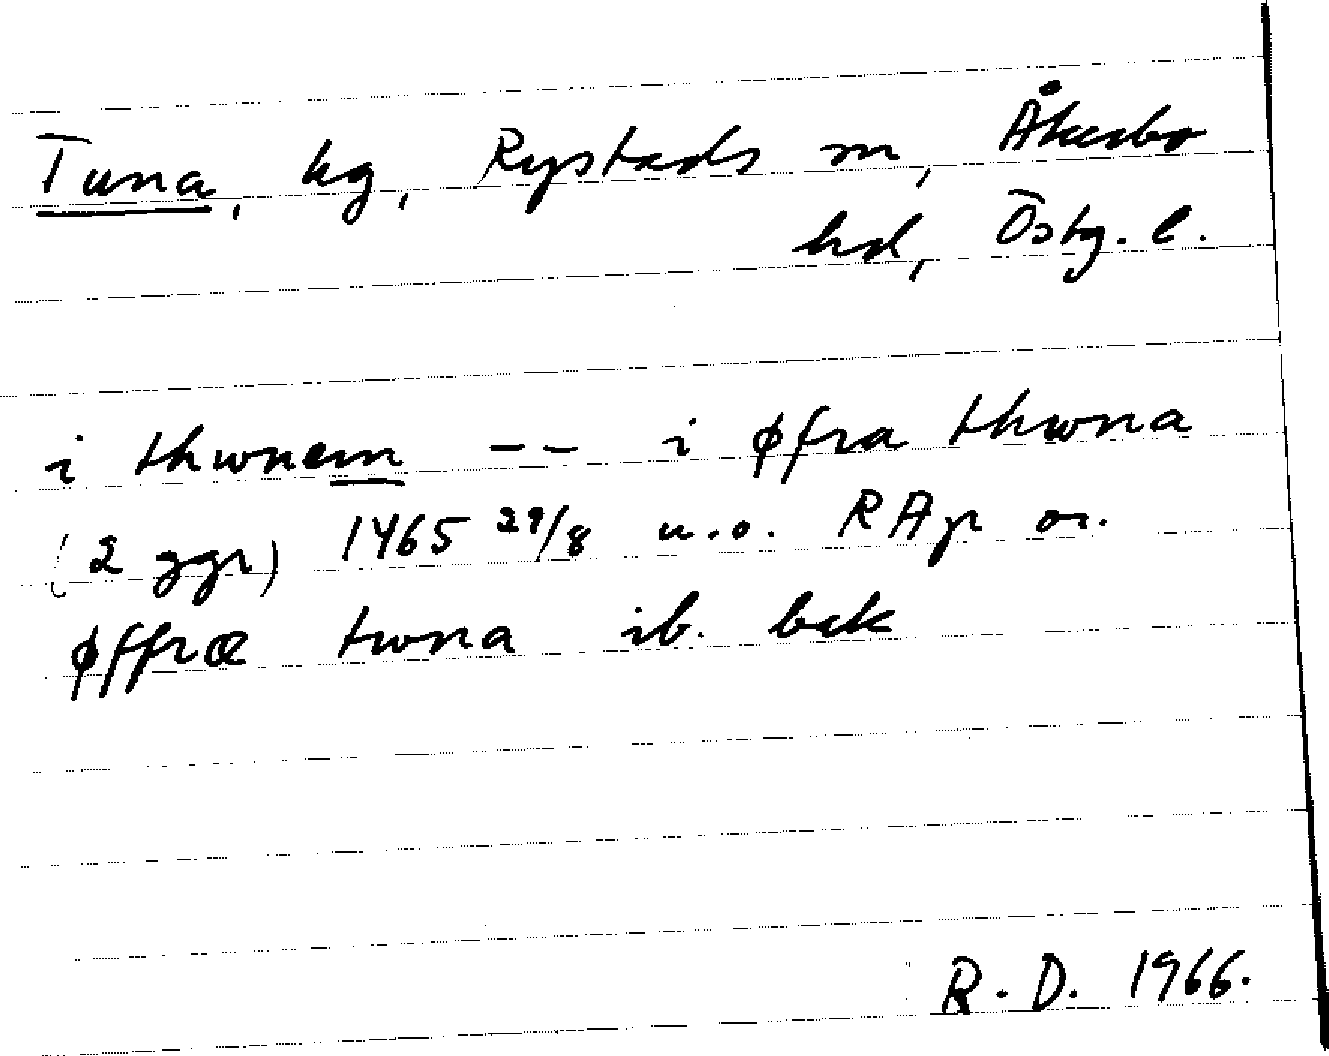 Tuna, hg, Rystads sn, Åkerbo
hd, Östg. l.
i thwnem -- i øfra thwna
(2 ggr) 1465 29/8 u.o. RAp or.
øffræ twna ib. bak
R.D. 1966.